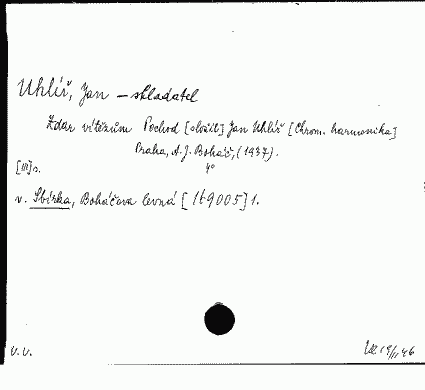 Uhlíř, Jan – skladatel
Zdar vítězům Pochod [složil] Jan Uhlíř [Chrom. harmonika]
Praha, A. J. Boháč, (1937).
4°
[III] s.
v. Sbírka, Boháčova levná [1t9005] 1.
V. V.
19/II 46